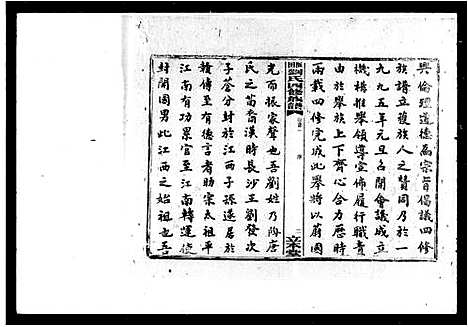 興倫理道德為宗旨倡議四修
族譜立覆族人之贊同乃於一
九九五年元旦召開會議成立
機構推舉領導宣佈履行職責
由於舉族上下齊心合力歷時
兩載四修完成此舉將以蓊國
劉氏四修族譜
卷首
序
二
光而振家聲也吾劉姓乃陶唐
氏之苗裔漢時長沙王劉發次
子蒼分封於江西子孫遂居於
贛傳至有德言者助宗太祖平
江南有功累官至江南轉運使
封開國男此江西之始祖也吾